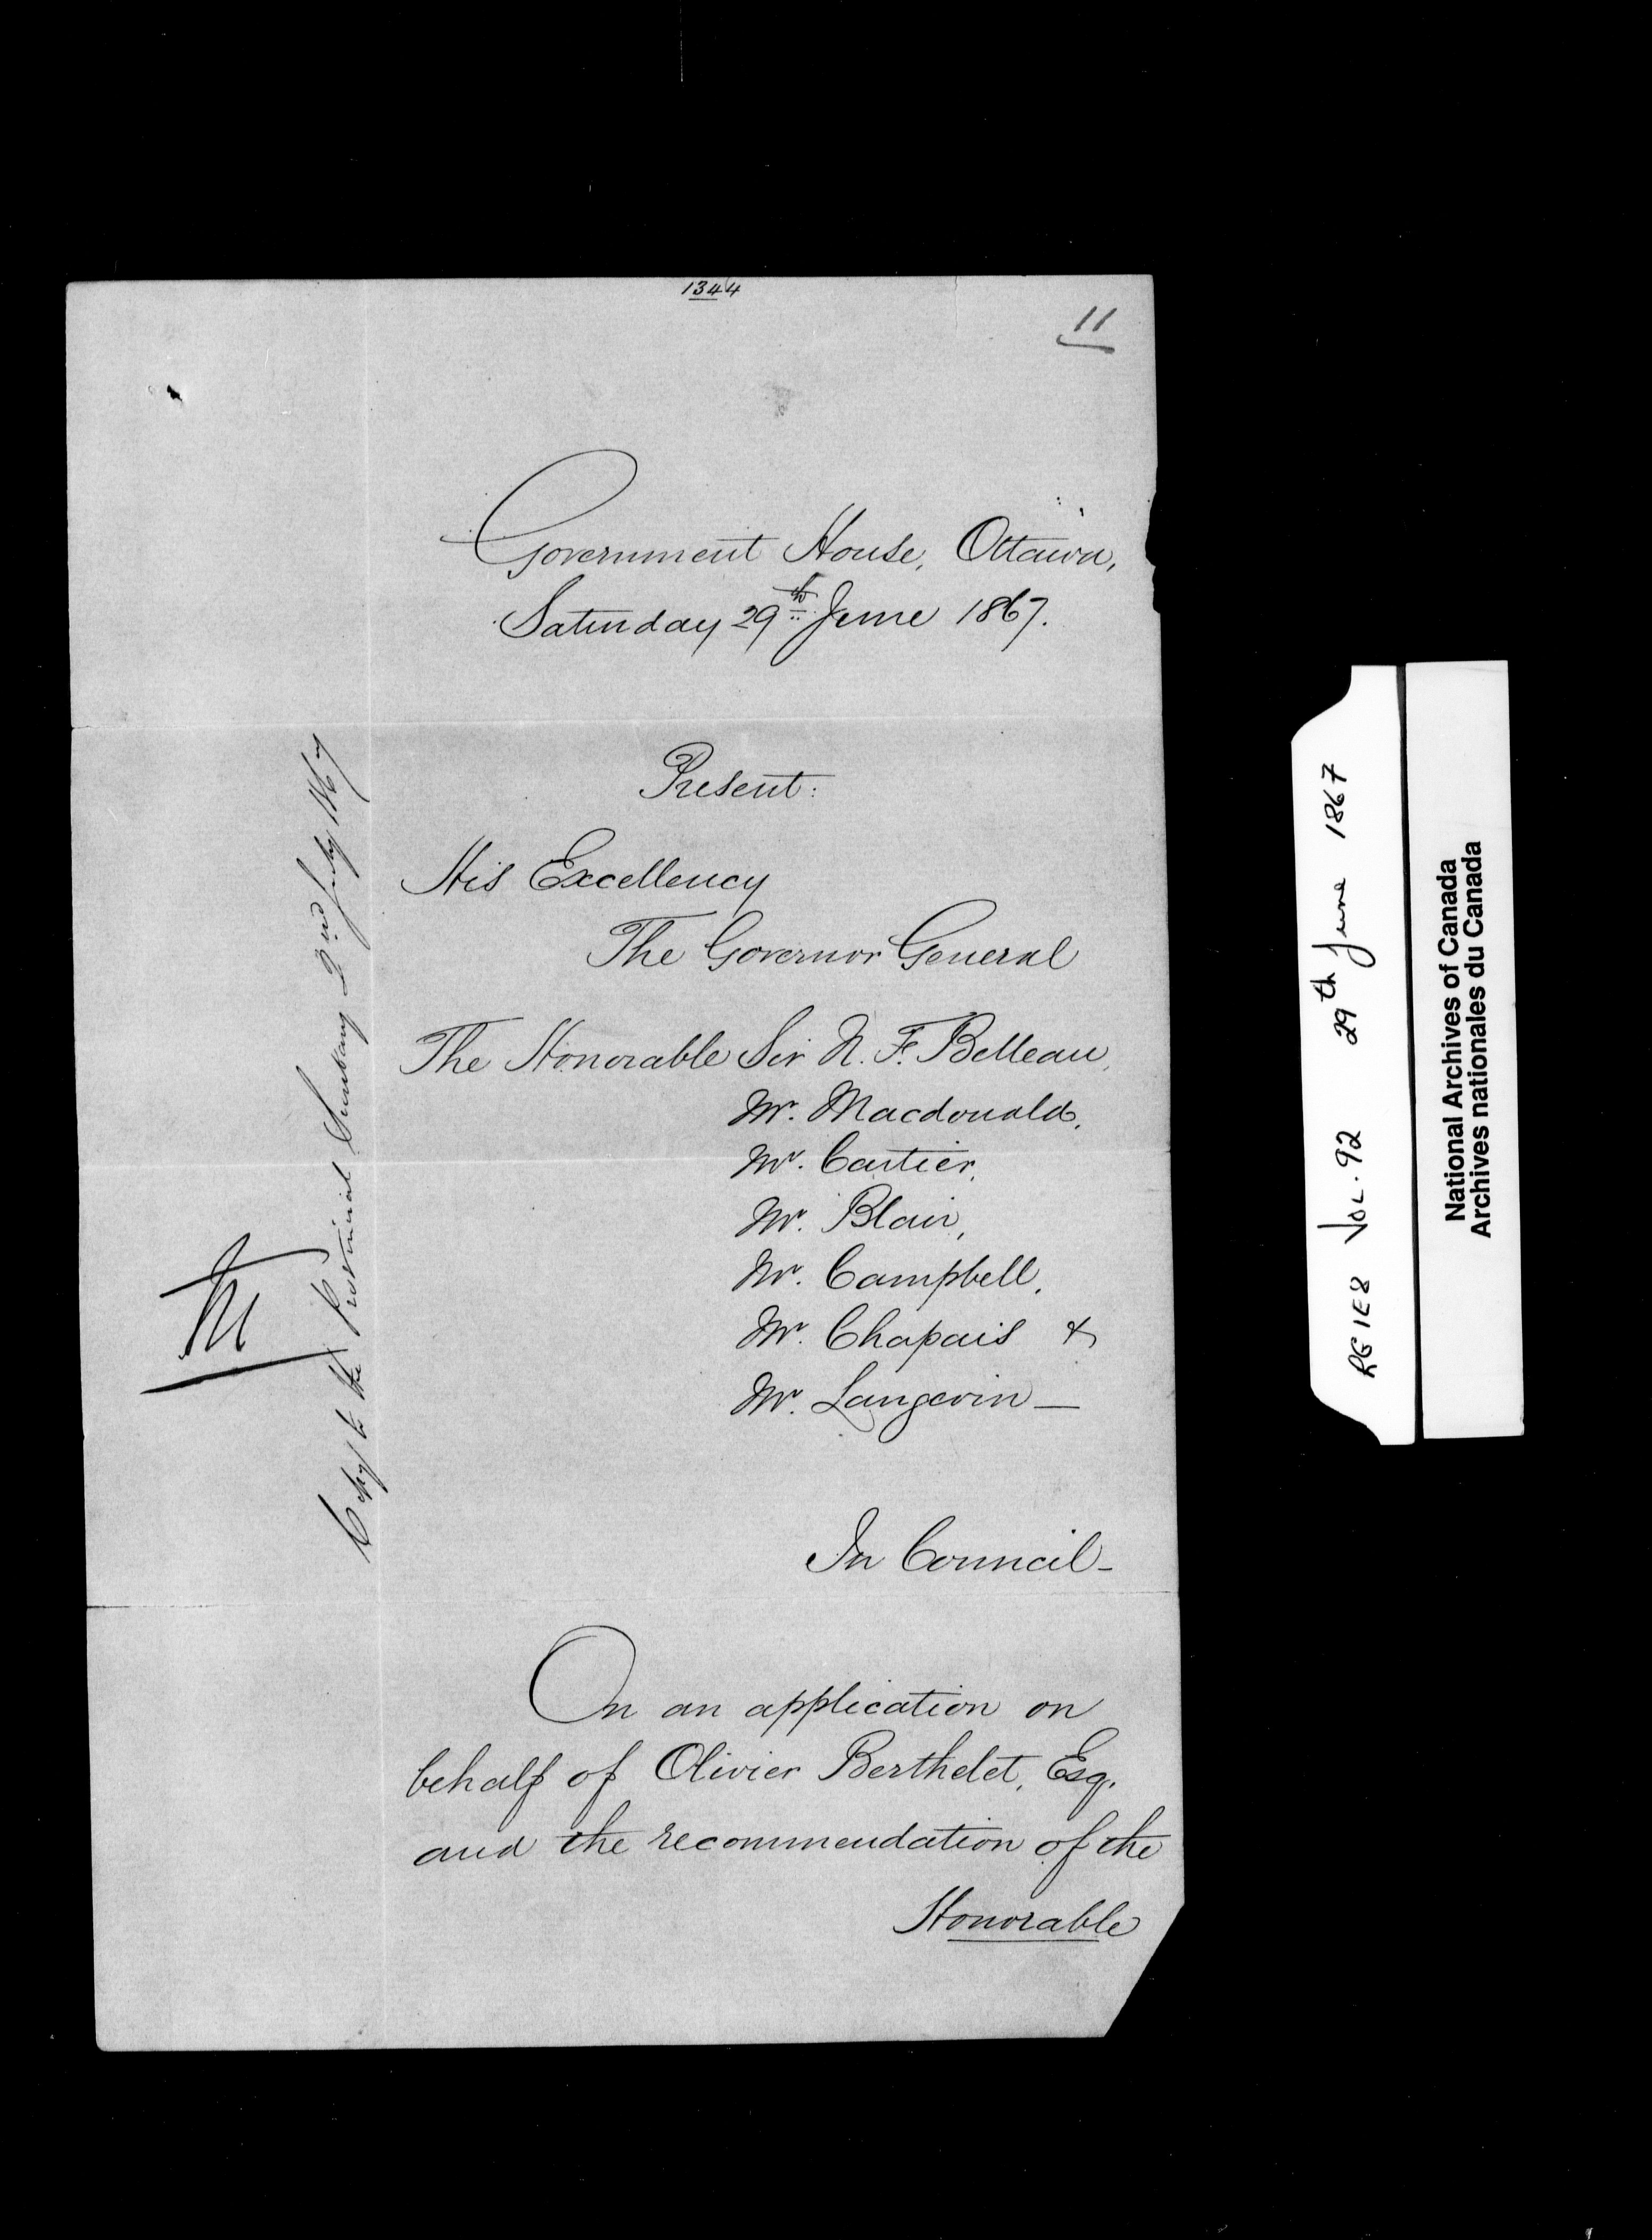 1344
11
Government House, Ottawa,
Saturday 29th June 1867.
Present:
His Excellency
The Governor General
The Honorable Sir N. F. Belleau,
Mr. Macdonald,
Mr. Cartier,
Mr. Blair,
Mr. Campbell,
Mr. Chapais &
Mr. Langevin —
In Council —
On an application on
behalf of Olivier Berthelet, Esq.
and the recommendation of the
Honorable
Copy to the Provincial Secretary 2nd July 1867
RG 1E8 VOL. 92 29th June 1867
National Archives of Canada
Archives nationales du Canada